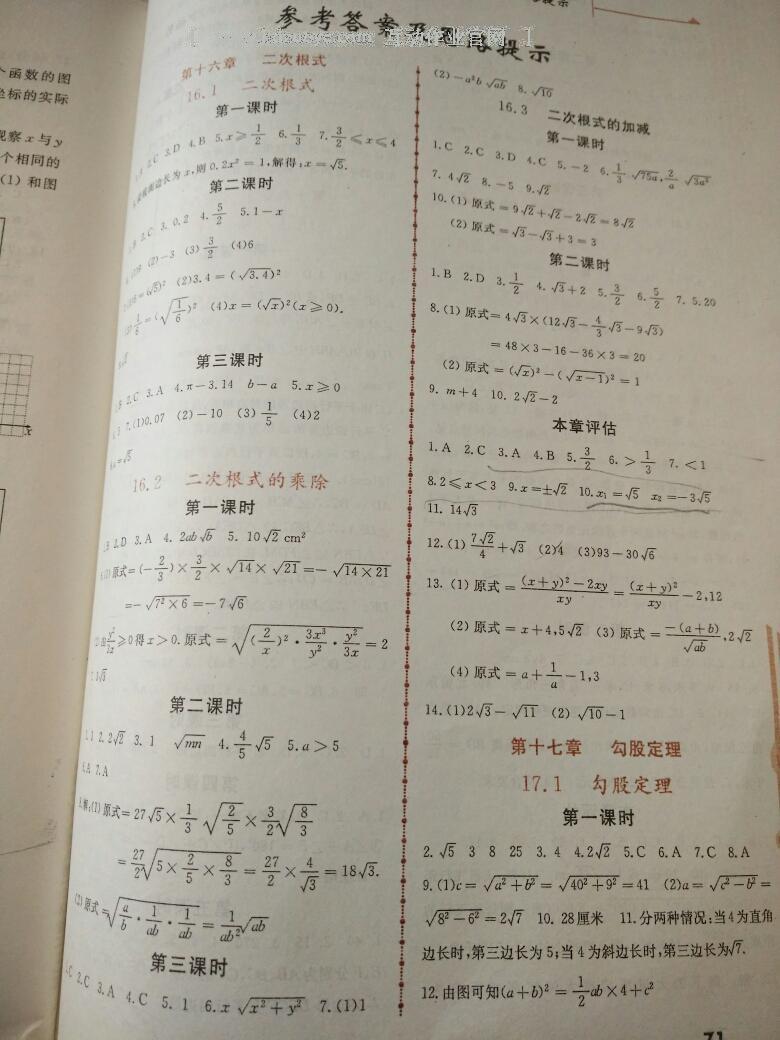 个函数的图
坐标的实际
观察x与y
个相同的
(1) 和图
x
参考答案及思路提示
第十六章 二次根式
16.1 二次根式
第一课时
2.C 3.D 4.B 5.x≥1/2 6.1/3 7.3/2≤x≤4
边长为x,则0.2x²=1,解得:x=√5.
第二课时
2.C 3.0.2 4.5/2 5.1-x
(2)-3 (3)3/2 (4)6
=(√5)² (2)3.4=(√3.4)²
1/6=(√(1/6))² (4)x=(√x)²(x≥0).
第三课时
2.C 3.A 4.π-3.14 b-a 5.x≥0
7.(1)0.07 (2)-10 (3)1/5 (4)2
=√5
16.2 二次根式的乘除
第一课时
2.D 3.A 4.2ab√b 5.10√2 cm²
原式=(-2/3)×3/2×√14×√21=-√(14×21)
=-√(7²×6)=-7√6
≥0得x>0.原式=√((2/x)²·3x³/y²·y²/3x)=2
第二课时
1.1 2.2√2 3.1 √mn 4.4/5√5 5.a>5
6.A 7.A
8.解:(1)原式=27√5×1/3√(2/5)×3/2√(8/3)
=27/2√(5×2/5×8/3)=27/2×4/√3=18√3.
(2)原式=√(a/b·1/ab·1/ab)=1/ab²√ab
第三课时
2.C 3.A 4.C 5.1 6.x√(x²+y²) 7.(1)1
(2)-a²b√ab 8.√10
16.3 二次根式的加减
第一课时
1.C 2.C 3.D 4.C 5.-2 6.1/3√75a,2/a√3a³
7.4√2 8.-5 9.√2
10.(1)原式=9√2+√2-2√2=8√2
(2)原式=√3-√3+3=3
第二课时
1.B 2.D 3.1/2 4.√3+2 5.3/2 6.5/2 7.5.20
8.(1)原式=4√3×(12√3-4/3√3-9√3)
=48×3-16-36×3=20
(2)原式=(√x)²-(√(x-1))²=1
9.m+4 10.2√2-2
本章评估
1.A 2.C 3.A 4.B 5.3/2 6.>1/3 7.<1
8.2≤x<3 9.x=±√2 10.x₁=√5 x₂=-3√5
11.14√3
12.(1)7√2/4+√3 (2)4 (3)93-30√6
13.(1)原式=((x+y)²-2xy)/xy=(x+y)²/xy-2,12
(2)原式=x+4,5√2 (3)原式=-(a+b)/√ab,2√2
(4)原式=a+1/a-1,3
14.(1)2√3-√11 (2)√10-1
第十七章 勾股定理
17.1 勾股定理
第一课时
2.√5 3 8 25 3.4 4.2√2 5.C 6.A 7.C 8.A
9.(1)c=√(a²+b²)=√(40²+9²)=41 (2)a=√(c²-b²)=
√(8²-6²)=2√7 10.28厘米 11.分两种情况:当4为直角
边长时,第三边长为5;当4为斜边长时,第三边长为√7.
12.由图可知(a+b)²=1/2ab×4+c²
71